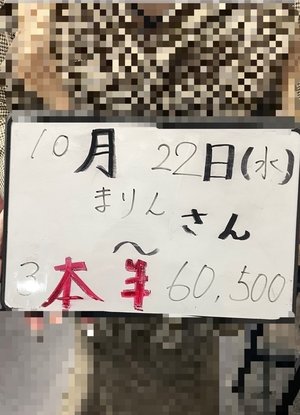 10月 22日(水)
まりん さん
〜
3本半 60,500